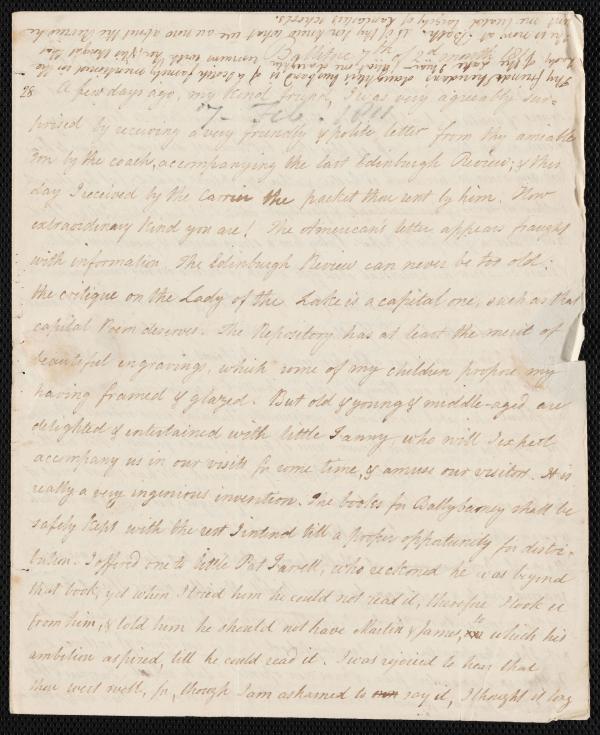 Ballitore 7th of 2d month 1811
28
A few days ago, my kind friend, I was very agreeably sur-
prised by receiving a very friendly & polite letter from thy amiable
son by the coach, accompanying the last Edinburgh Review; & this
day I received by the Carrier the packet thou sent by him. How
extraordinary kind you are! The American's letter appears fraught
with information. The Edinburgh Review can never be too old:
the critique on the Lady of the Lake is a capital one, such as that
capital Poem deserves. The Repository has at least the merit of
beautiful engravings, which some of my children propose my
having framed & glazed. But old & young & middle-aged are
delighted & entertained with little Fanny, who will I expect
accompany us in our visits for some time, & amuse our visitors. It is
really a very ingenious invention. The books for Ballybarney shall be
safely kept with the rest I intend till a proper opportunity for distri-
bution. I offered one to little Pat Farrell, who reckoned he was beyond
that book, yet when I tried him he could not read it, therefore I took it
from him, & told him he should not have Martin & James, to which his
ambition aspired, till he could read it. I was rejoiced to hear that
thou wert well, for, though I am ashamed to say it, I thought it long
7 Feb. 1811